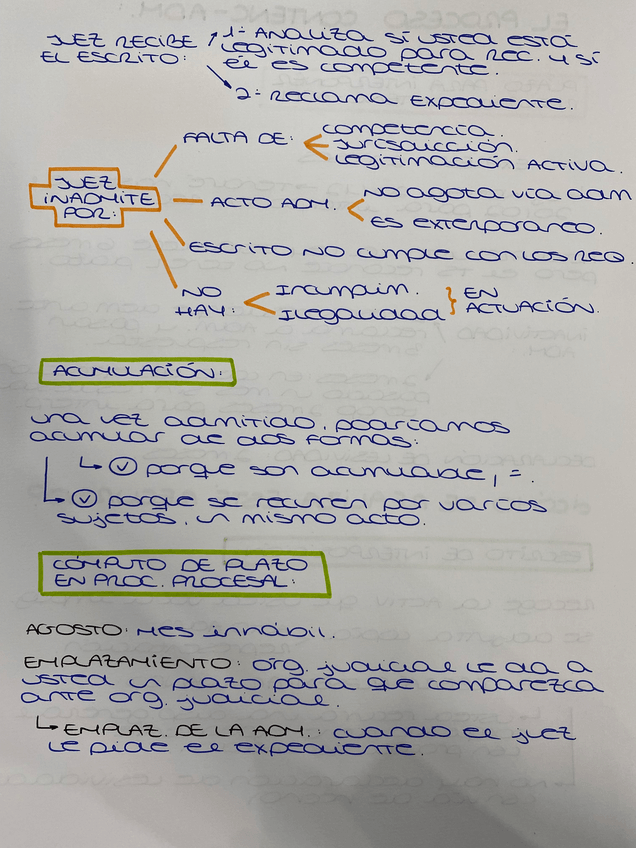 JUEZ RECIBE
EL ESCRITO:
1- Analiza si usted está
legitimado para rec. y si
él es competente.
2- Reclama expediente.
JUEZ
INADMITE
POR:
FALTA DE:
competencia.
jurisdicción.
legitimación activa.
ACTO ADM.
No agota vía adm
es extemporaneo.
ESCRITO NO CUMPLE CON LOS REQ.
NO
HAY:
Incumplim.
Ilegalidad
EN
ACTUACIÓN.
ACUMULACIÓN:
una vez admitido, podríamos
acumular de dos formas:
porque son acumulable, =.
porque se recurren por varios
sujetos, un mismo acto.
CÓMPUTO DE PLAZO
EN PROC. PROCESAL:
AGOSTO: Mes inhábil.
EMPLAZAMIENTO: org. judicial le da a
usted un plazo para que comparezca
ante org. judicial.
EMPLAZ. DE LA ADM.: cuando el juez
le pide el expediente.